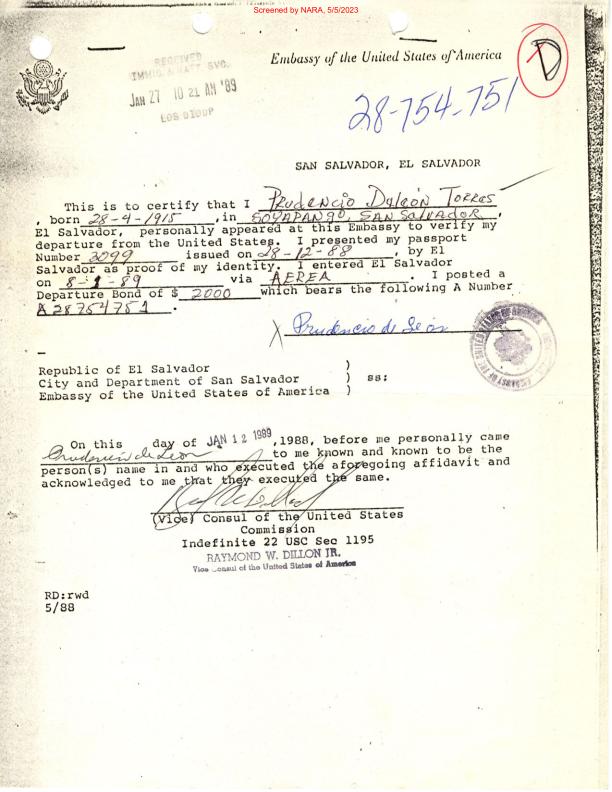 Screened by NARA, 5/5/2023
RECEIVED
IMMIG. & NAT. SVC.
JAN 27 10 21 AM '89
Embassy of the United States of America
D
28-754-751
SAN SALVADOR, EL SALVADOR
This is to certify that I Prudencio Deleón Torres
, born 28-4-1915 ,in SOYAPANGO, SAN SALVADOR ,
El Salvador, personally appeared at this Embassy to verify my
departure from the United States. I presented my passport
Number 3099 issued on 28-12-88 , by El
Salvador as proof of my identity. I entered El Salvador
on 8-1-89 via AEREA . I posted a
Departure Bond of $ 2000 which bears the following A Number
A28754751 .
X Prudencio de León
Republic of El Salvador )
City and Department of San Salvador ) ss:
Embassy of the United States of America )
On this day of JAN 12 1989 ,1988, before me personally came
Prudencio de Leon to me known and known to be the
person(s) name in and who executed the aforegoing affidavit and
acknowledged to me that they executed the same.
(Vice) Consul of the United States
Commission
Indefinite 22 USC Sec 1195
RAYMOND W. DILLON JR.
Vice Consul of the United States of America
RD:rwd
5/88